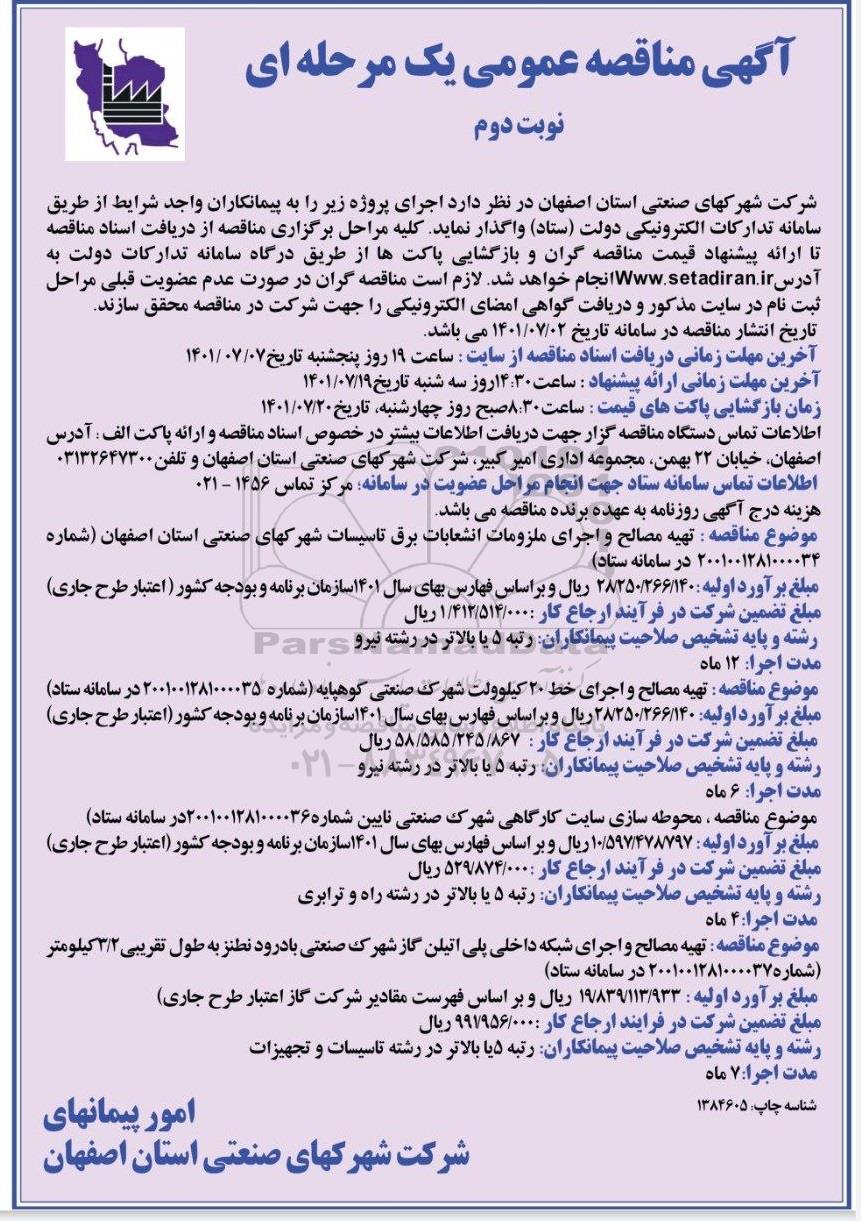 آگهی مناقصه عمومی یک مرحله ای
نوبت دوم
شرکت شهرکهای صنعتی استان اصفهان در نظر دارد اجرای پروژه زیر را به پیمانکاران واجد شرایط از طریق
سامانه تدارکات الکترونیکی دولت (ستاد) واگذار نماید. کلیه مراحل برگزاری مناقصه از دریافت اسناد مناقصه
تا ارائه پیشنهاد قیمت مناقصه گران و بازگشایی پاکت ها از طریق درگاه سامانه تدارکات دولت به
آدرسWww.setadiran.irانجام خواهد شد. لازم است مناقصه گران در صورت عدم عضویت قبلی مراحل
ثبت نام در سایت مذکور و دریافت گواهی امضای الکترونیکی را جهت شرکت در مناقصه محقق سازند.
تاریخ انتشار مناقصه در سامانه تاریخ ۱۴۰۱/۰۷/۰۲ می باشد.
آخرین مهلت زمانی دریافت اسناد مناقصه از سایت : ساعت ۱۹ روز پنجشنبه تاریخ۰۷/ ۰۷ /۱۴۰۱
آخرین مهلت زمانی ارائه پیشنهاد : ساعت۱۴:۳۰روز سه شنبه تاریخ۱۴۰۱/۰۷/۱۹
زمان بازگشایی پاکت های قیمت : ساعت۸:۳۰صبح روز چهارشنبه، تاریخ۱۴۰۱/۰۷/۲۰
اطلاعات تماس دستگاه مناقصه گزار جهت دریافت اطلاعات بیشتر در خصوص اسناد مناقصه و ارائه پاکت الف : آدرس
اصفهان، خیابان ۲۲ بهمن، مجموعه اداری امیر کبیر، شرکت شهرکهای صنعتی استان اصفهان و تلفن۰۳۱۳۲۶۴۷۳۰۰
اطلاعات تماس سامانه ستاد جهت انجام مراحل عضویت در سامانه؛ مرکز تماس ۱۴۵۶ - ۰۲۱
هزینه درج آگهی روزنامه به عهده برنده مناقصه می باشد.
موضوع مناقصه : تهیه مصالح و اجرای ملزومات انشعابات برق تاسیسات شهرکهای صنعتی استان اصفهان (شماره
۲۰۰۱۰۰۱۲۸۱۰۰۰۰۳۴ در سامانه ستاد)
مبلغ برآورد اولیه :۲۸/۲۵۰/۲۶۶/۱۴۰ ریال و براساس فهارس بهای سال ۱۴۰۱سازمان برنامه و بودجه کشور ( اعتبار طرح جاری)
مبلغ تضمین شرکت در فرآیند ارجاع کار :۱/۴۱۲/۵۱۴/۰۰۰ ریال
رشته و پایه تشخیص صلاحیت پیمانکاران: رتبه ۵ یا بالاتر در رشته نیرو
مدت اجرا: ۱۲ ماه
موضوع مناقصه : تهیه مصالح و اجرای خط ۲۰ کیلوولت شهرک صنعتی کوهپایه (شماره ۲۰۰۱۰۰۱۲۸۱۰۰۰۰۳۵ در سامانه ستاد)
مبلغ برآورد اولیه: ۲۸/۲۵۰/۲۶۶/۱۴۰ ریال و براساس فهارس بهای سال ۱۴۰۱سازمان برنامه و بودجه کشور (اعتبار طرح جاری)
مبلغ تضمین شرکت در فرآیند ارجاع کار : ۵۸/۵۸۵/۲۴۵/۸۶۷ ریال
رشته و پایه تشخیص صلاحیت پیمانکاران: رتبه ۵ یا بالاتر در رشته نیرو
مدت اجرا: ۶ ماه
موضوع مناقصه ، محوطه سازی سایت کارگاهی شهرک صنعتی نایین شماره۲۰۰۱۰۰۱۲۸۱۰۰۰۰۳۶در سامانه ستاد)
مبلغ برآورد اولیه : ۱۰/۵۹۷/۴۷۸۷۹۷ ریال و بر اساس فهارس بهای سال ۱۴۰۱سازمان برنامه و بودجه کشور (اعتبار طرح جاری)
مبلغ تضمین شرکت در فرآیند ارجاع کار :۵۲۹/۸۷۴/۰۰۰ ریال
رشته و پایه تشخیص صلاحیت پیمانکاران: رتبه ۵ یا بالاتر در رشته راه و ترابری
مدت اجرا: ۴ ماه
موضوع مناقصه : تهیه مصالح و اجرای شبکه داخلی پلی اتیلن گاز شهرک صنعتی بادرود نطنز به طول تقریبی۳/۲کیلومتر
(شماره۲۰۰۱۰۰۱۲۸۱۰۰۰۰۳۷ در سامانه ستاد)
مبلغ برآورد اولیه : ۱۹/۸۳۹/۱۱۳/۹۳۳ ریال و بر اساس فهرست مقادیر شرکت گاز اعتبار طرح جاری)
مبلغ تضمین شرکت در فرایند ارجاع کار :۹۹۱/۹۵۶/۰۰۰ ریال
رشته و پایه تشخیص صلاحیت پیمانکاران: رتبه ۵یا بالاتر در رشته تاسیسات و تجهیزات
مدت اجرا: ۷ ماه
شناسه چاپ: ۱۳۸۴۶۰۵
امور پیمانهای
شرکت شهرکهای صنعتی استان اصفهان
ParsNamadData
۰۲۱-۸۸۳۴۹۶۷۰-۵